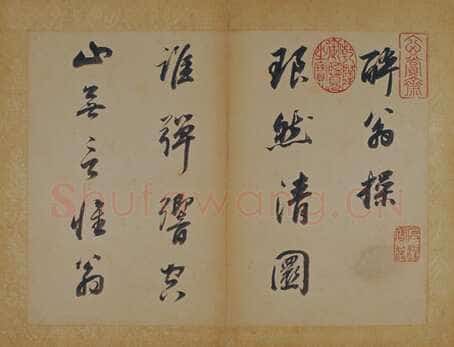 醉翁操
琅然清圜
誰彈響空
山無言惟翁
Shufawang.CN